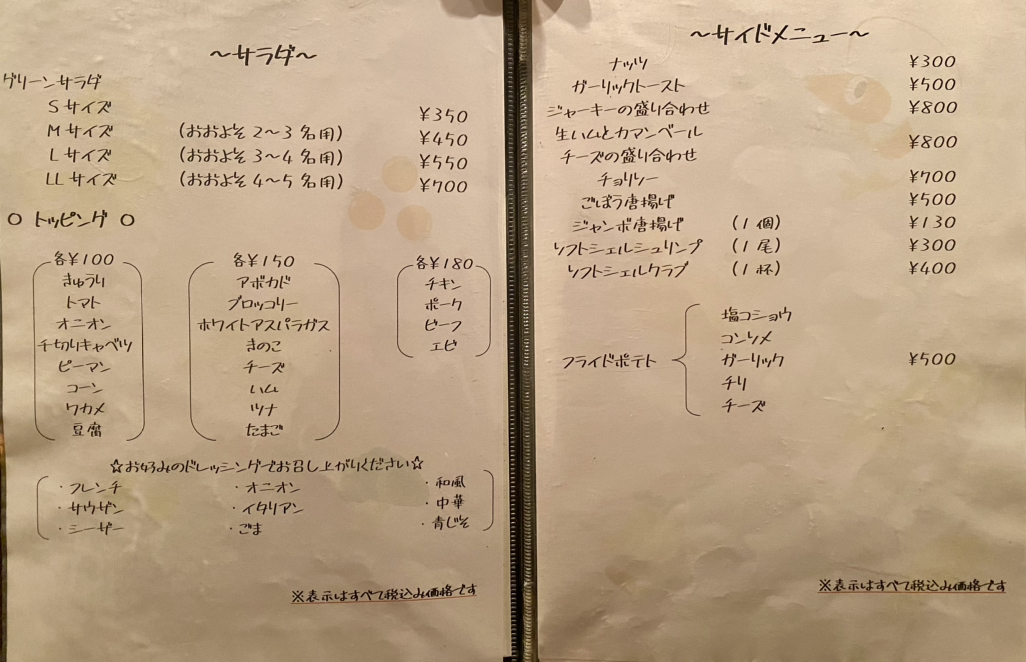 ～サラダ～
グリーンサラダ
Sサイズ ¥350
Mサイズ (おおよそ2～3名用) ¥450
Lサイズ (おおよそ3～4名用) ¥550
LLサイズ (おおよそ4～5名用) ¥700
○ トッピング ○
各¥100
きゅうり
トマト
オニオン
千切りキャベツ
ピーマン
コーン
ワカメ
豆腐
各¥150
アボカド
ブロッコリー
ホワイトアスパラガス
きのこ
チーズ
ハム
ツナ
たまご
各¥180
チキン
ポーク
ビーフ
エビ
☆お好みのドレッシングでお召し上がりください☆
・フレンチ ・オニオン ・和風
・サウザン ・イタリアン ・中華
・シーザー ・ごま ・青じそ
※表示はすべて税込み価格です
～サイドメニュー～
ナッツ ¥300
ガーリックトースト ¥500
ジャーキーの盛り合わせ ¥800
生ハムとカマンベール
チーズの盛り合わせ ¥800
チョリソー ¥700
ごぼう唐揚げ ¥500
ジャンボ唐揚げ (1個) ¥130
ソフトシェルシュリンプ (1尾) ¥300
ソフトシェルクラブ (1杯) ¥400
フライドポテト ¥500
塩コショウ
コンソメ
ガーリック
チリ
チーズ
※表示はすべて税込み価格です